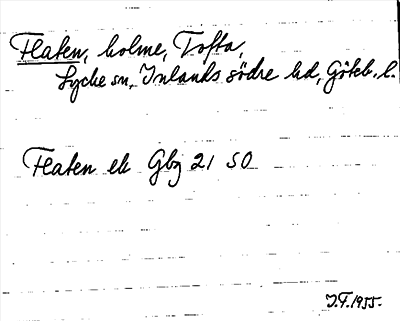 Flaten, holme, Tofta,
Lycke sn, Inlands södre hd, Göteb. l.
Flaten ek Gbg 21 SO
J.F. 1955.